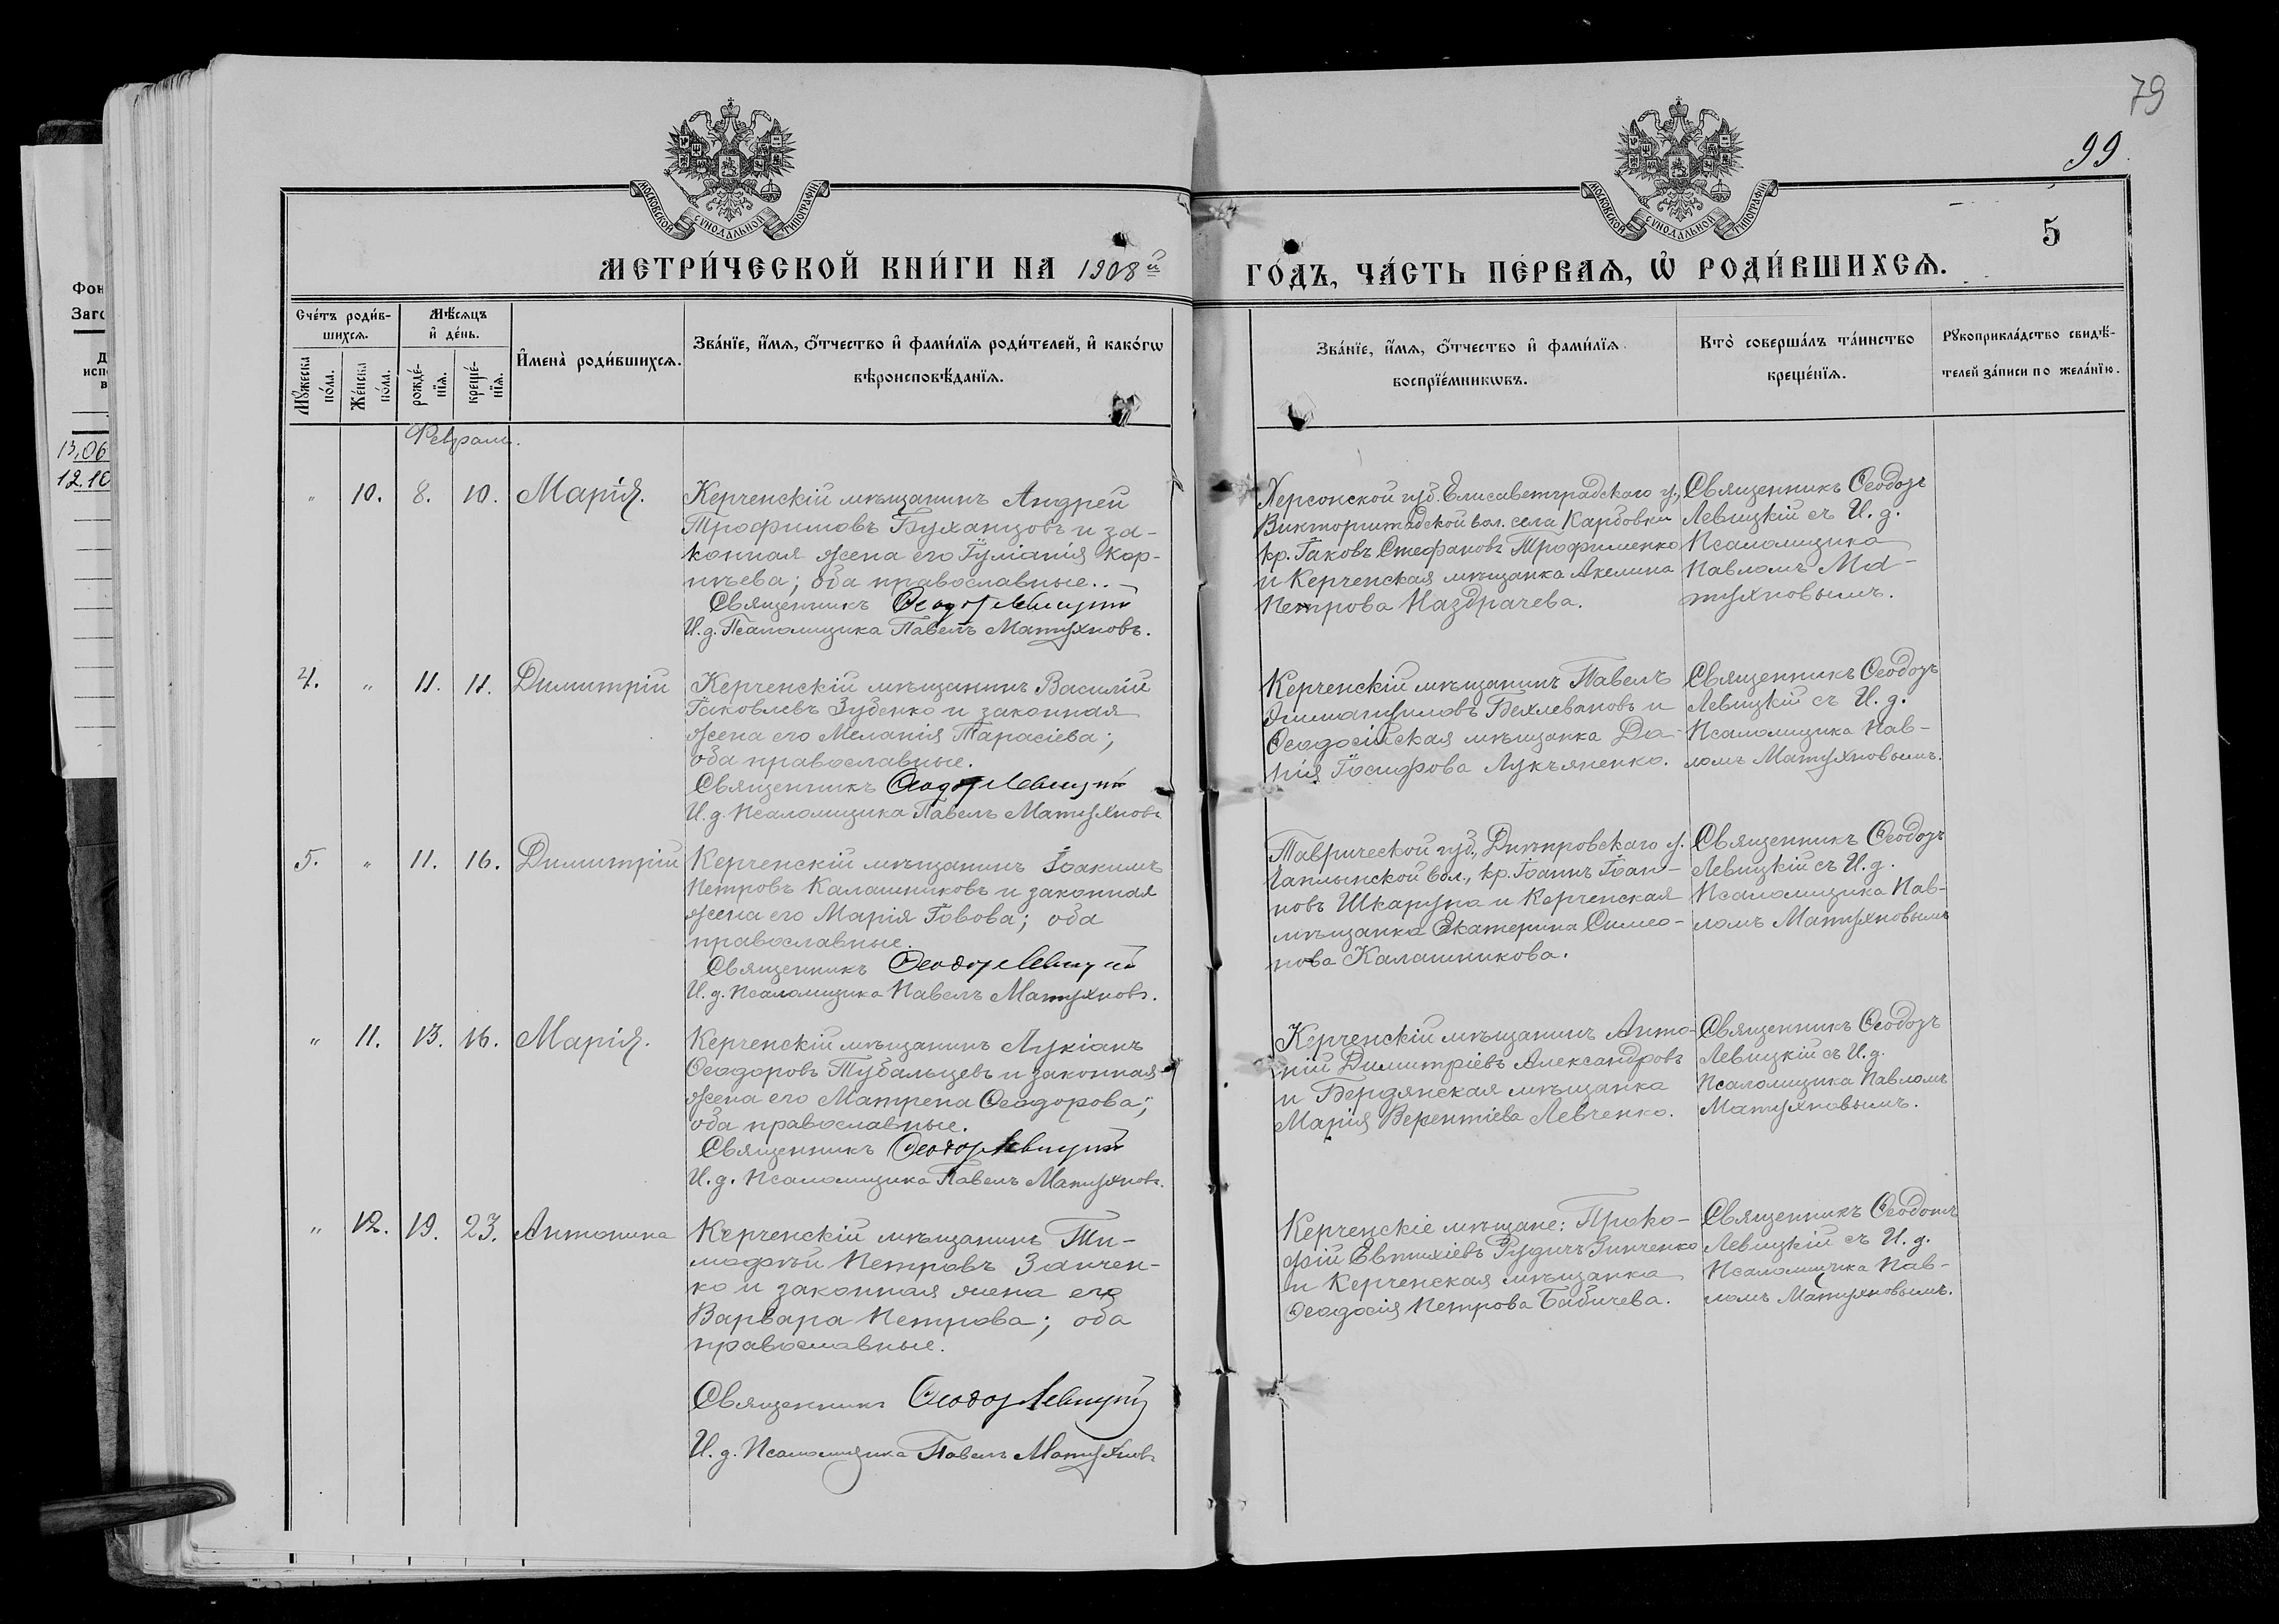 79
99.
5
МОСКОВСКОЙ СУНОДАЛЬНОЙ ТИПОГРАФІИ
МОСКОВСКОЙ СУНОДАЛЬНОЙ ТИПОГРАФІИ
МЕТРИ́ЧЕСКОЙ КНИ́ГИ НА 1908й ГО́ДЪ, ЧА́СТЬ ПЕ́РВАѦ, Ѽ РОДИ́ВШИХСѦ.
Сче́тъ роди́в-
шихсѧ.
Мꙋ́жеска по́ла.
Же́нска по́ла.
Мѣ́сѧцъ
и҆ де́нь.
рожде́-
нїѧ.
креще́-
нїѧ.
И҆мена̀ роди́вшихсѧ.
Зва́нїе, и҆́мѧ, ѻ҆́тчество и҆ фами́лїѧ роди́телей, и҆ како́гѡ
вѣроисповѣ́данїѧ.
Зва́нїе, и҆́мѧ, ѻ҆́тчество и҆ фами́лїѧ
воспрїе́мникѡвъ.
Кто̀ соверша́лъ та́инство
креще́нїѧ.
Рꙋкоприкла́дство свидѣ́-
телей за́писи по жела́нїю.
Фон
Заго
13.06
12.10
Февраль.
" 10. 8. 10. Марія.
Керченскій мѣщанинъ Андрей
Трофимовъ Буханцовъ и за-
конная жена его Іуліанія Кор-
нѣева; оба православные.
Священникъ Ѳеодоръ Левицкій
И. д. Псаломщика Павелъ Матухновъ.
Херсонской губ. Елисаветградскаго у.,
Викторштадской вол. села Карбовки
кр. Іаковъ Стефановъ Трофименко
и Керченская мѣщанка Акелина
Петрова Наздрачева.
Священникъ Ѳеодоръ
Левицкій съ И. д.
Псаломщика
Павломъ Ма-
тухновымъ.
4. " 11. 11. Димитрій
Керченскій мѣщанинъ Василій
Іаковлевъ Зубенко и законная
жена его Меланія Тарасіева;
оба православные.
Священникъ Ѳеодоръ Левицкій
И. д. Псаломщика Павелъ Матухновъ
Керченскій мѣщанинъ Павелъ
Бехлевановъ и
Ѳеодосійская мѣщанка Да-
рія Іосифова Лукъяненко.
Священникъ Ѳеодоръ
Левицкій съ И. д.
Псаломщика Пав-
ломъ Матухновымъ.
5. " 11. 16. Димитрій
Керченскій мѣщанинъ Іоакимъ
Петровъ Калашниковъ и законная
жена его Марія Іовова; оба
православные.
Священникъ Ѳеодоръ Левицкій
И. д. Псаломщика Павелъ Матухновъ.
Таврической губ., Днѣпровскаго у.
Чаплынской вол., кр. Іоаннъ Іоан-
новъ Шкарупа и Керченская
мѣщанка Екатерина Симео-
нова Калашникова.
Священникъ Ѳеодоръ
Левицкій съ И. д.
Псаломщика Пав-
ломъ Матухновымъ
" 11. 13. 16. Марія.
Керченскій мѣщанинъ Лукіанъ
Ѳеодоровъ Тубальцевъ и законная
жена его Матрена Ѳеодорова;
оба православные.
Священникъ Ѳеодоръ Левицкій
И. д. Псаломщика Павелъ Матухновъ.
Керченскій мѣщанинъ Анто-
ній Димитріевъ Александровъ
и Бердянская мѣщанка
Марія Верентіева Левченко.
Священникъ Ѳеодоръ
Левицкій съ И. д.
Псаломщика Павломъ
Матухновымъ.
" 12. 19. 23. Антонина
Керченскій мѣщанинъ Ти-
мофѣй Петровъ Заичен-
ко и законная жена его
Варвара Петрова; оба
православные.
Священникъ Ѳеодоръ Левицкій
И. д. Псаломщика Павелъ Матухновъ
Керченскіе мѣщане: Проко-
фій Евтихіевъ Зинченко
и Керченская мѣщанка
Ѳеодосія Петрова Бабичева.
Священникъ Ѳеодоръ
Левицкій съ И. д.
Псаломщика Пав-
ломъ Матухновымъ.